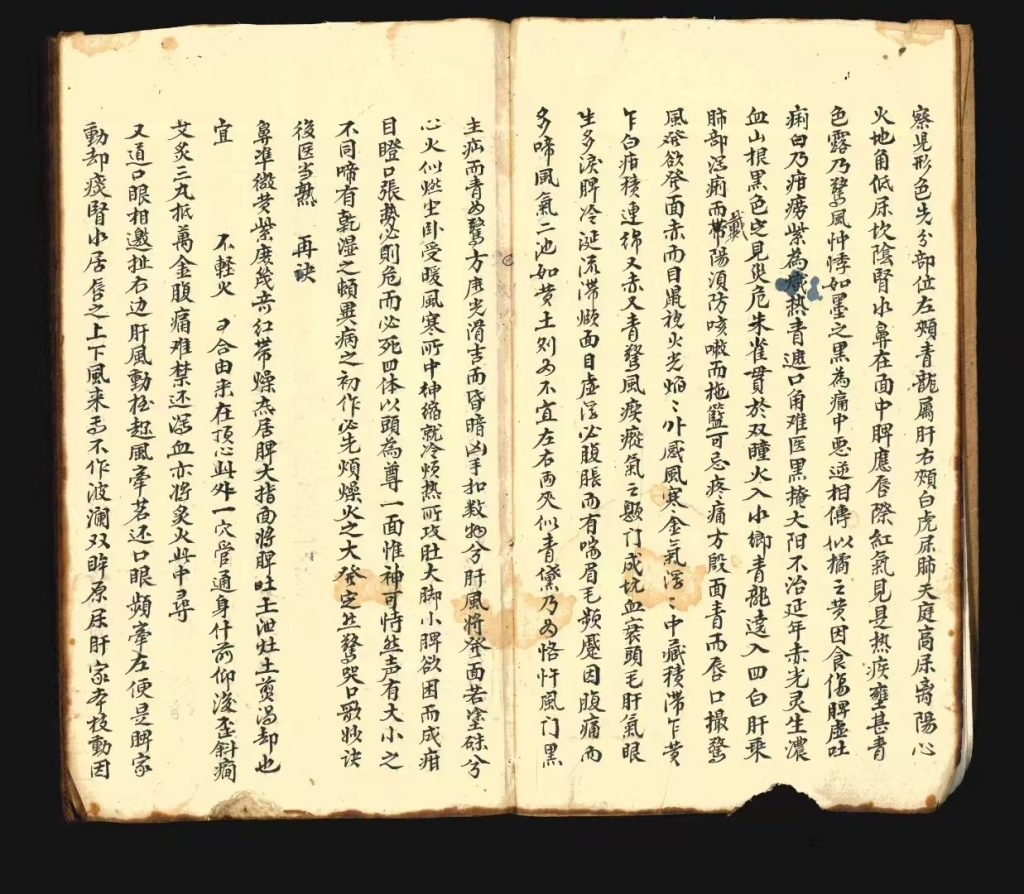 察児形色先分部位左頰青龍属肝右頰白虎属肺天庭高属离陽心
火地角低属坎陰腎水鼻在面中脾應唇際紅氣見是热疾壅甚青
色露乃驚風忡悸如墨之黒為痛中惡逆相傳似橘之黄因食傷脾虚吐
痢白乃疳癆紫為热青遮口角难医黒掩大阳不治延年赤光灵生濃
血山根黒色定見災危朱雀貫於双瞳火入小鄉青龍遠入四白肝乘
肺部泻痢而帶陽須防咳嗽而拖籃可忌疼痛方殷面青而唇口撮驚
戴
風發欲發面赤而目鼠視火光焰〻外感風寒金氣浮〻中藏積滯乍黄
乍白疳積連綿又赤又青驚風瘈瘲氣之顖门成坑血衰頭毛肝氣眼
生多淚脾冷涎流滞頰面目虚浮必腹脹而有喘眉毛頻蹙因腹痛而
多啼風氣二池如黄土则为不宜左右两夾似青黛乃为恪忤風门黒
主疝而青为驚方廣光滑吉而昏暗凶手扣数物兮肝風將發面若塗硃兮
心火似燃坐卧受暖風寒所中伸縮就冷煩热所攻肚大脚小脾欲困而成疳
目瞪口張勢必則危而必死四体以頭為尊一面惟神可恃然声有大小之
不同啼有乾湿之頓異病之初作必先煩燥火之大發定然驚哭口歌妙诀
後医当熟 再诀
鼻準微黄紫庶幾奇紅帶燥居脾大指面將脾吐土泄灶土煎湯却也
宜 不軽火 合由来在頂心此外一穴管通身什前仰後歪斜癎
艾炙三丸抵萬金腹痛难禁还泻血亦將炙火此中尋
又道口眼相邀扯右边肝風動起風牽若还口眼頻牽左便是脾家
動却痰腎水居唇之上下風来不作波瀾双眸原属肝家本枝動因